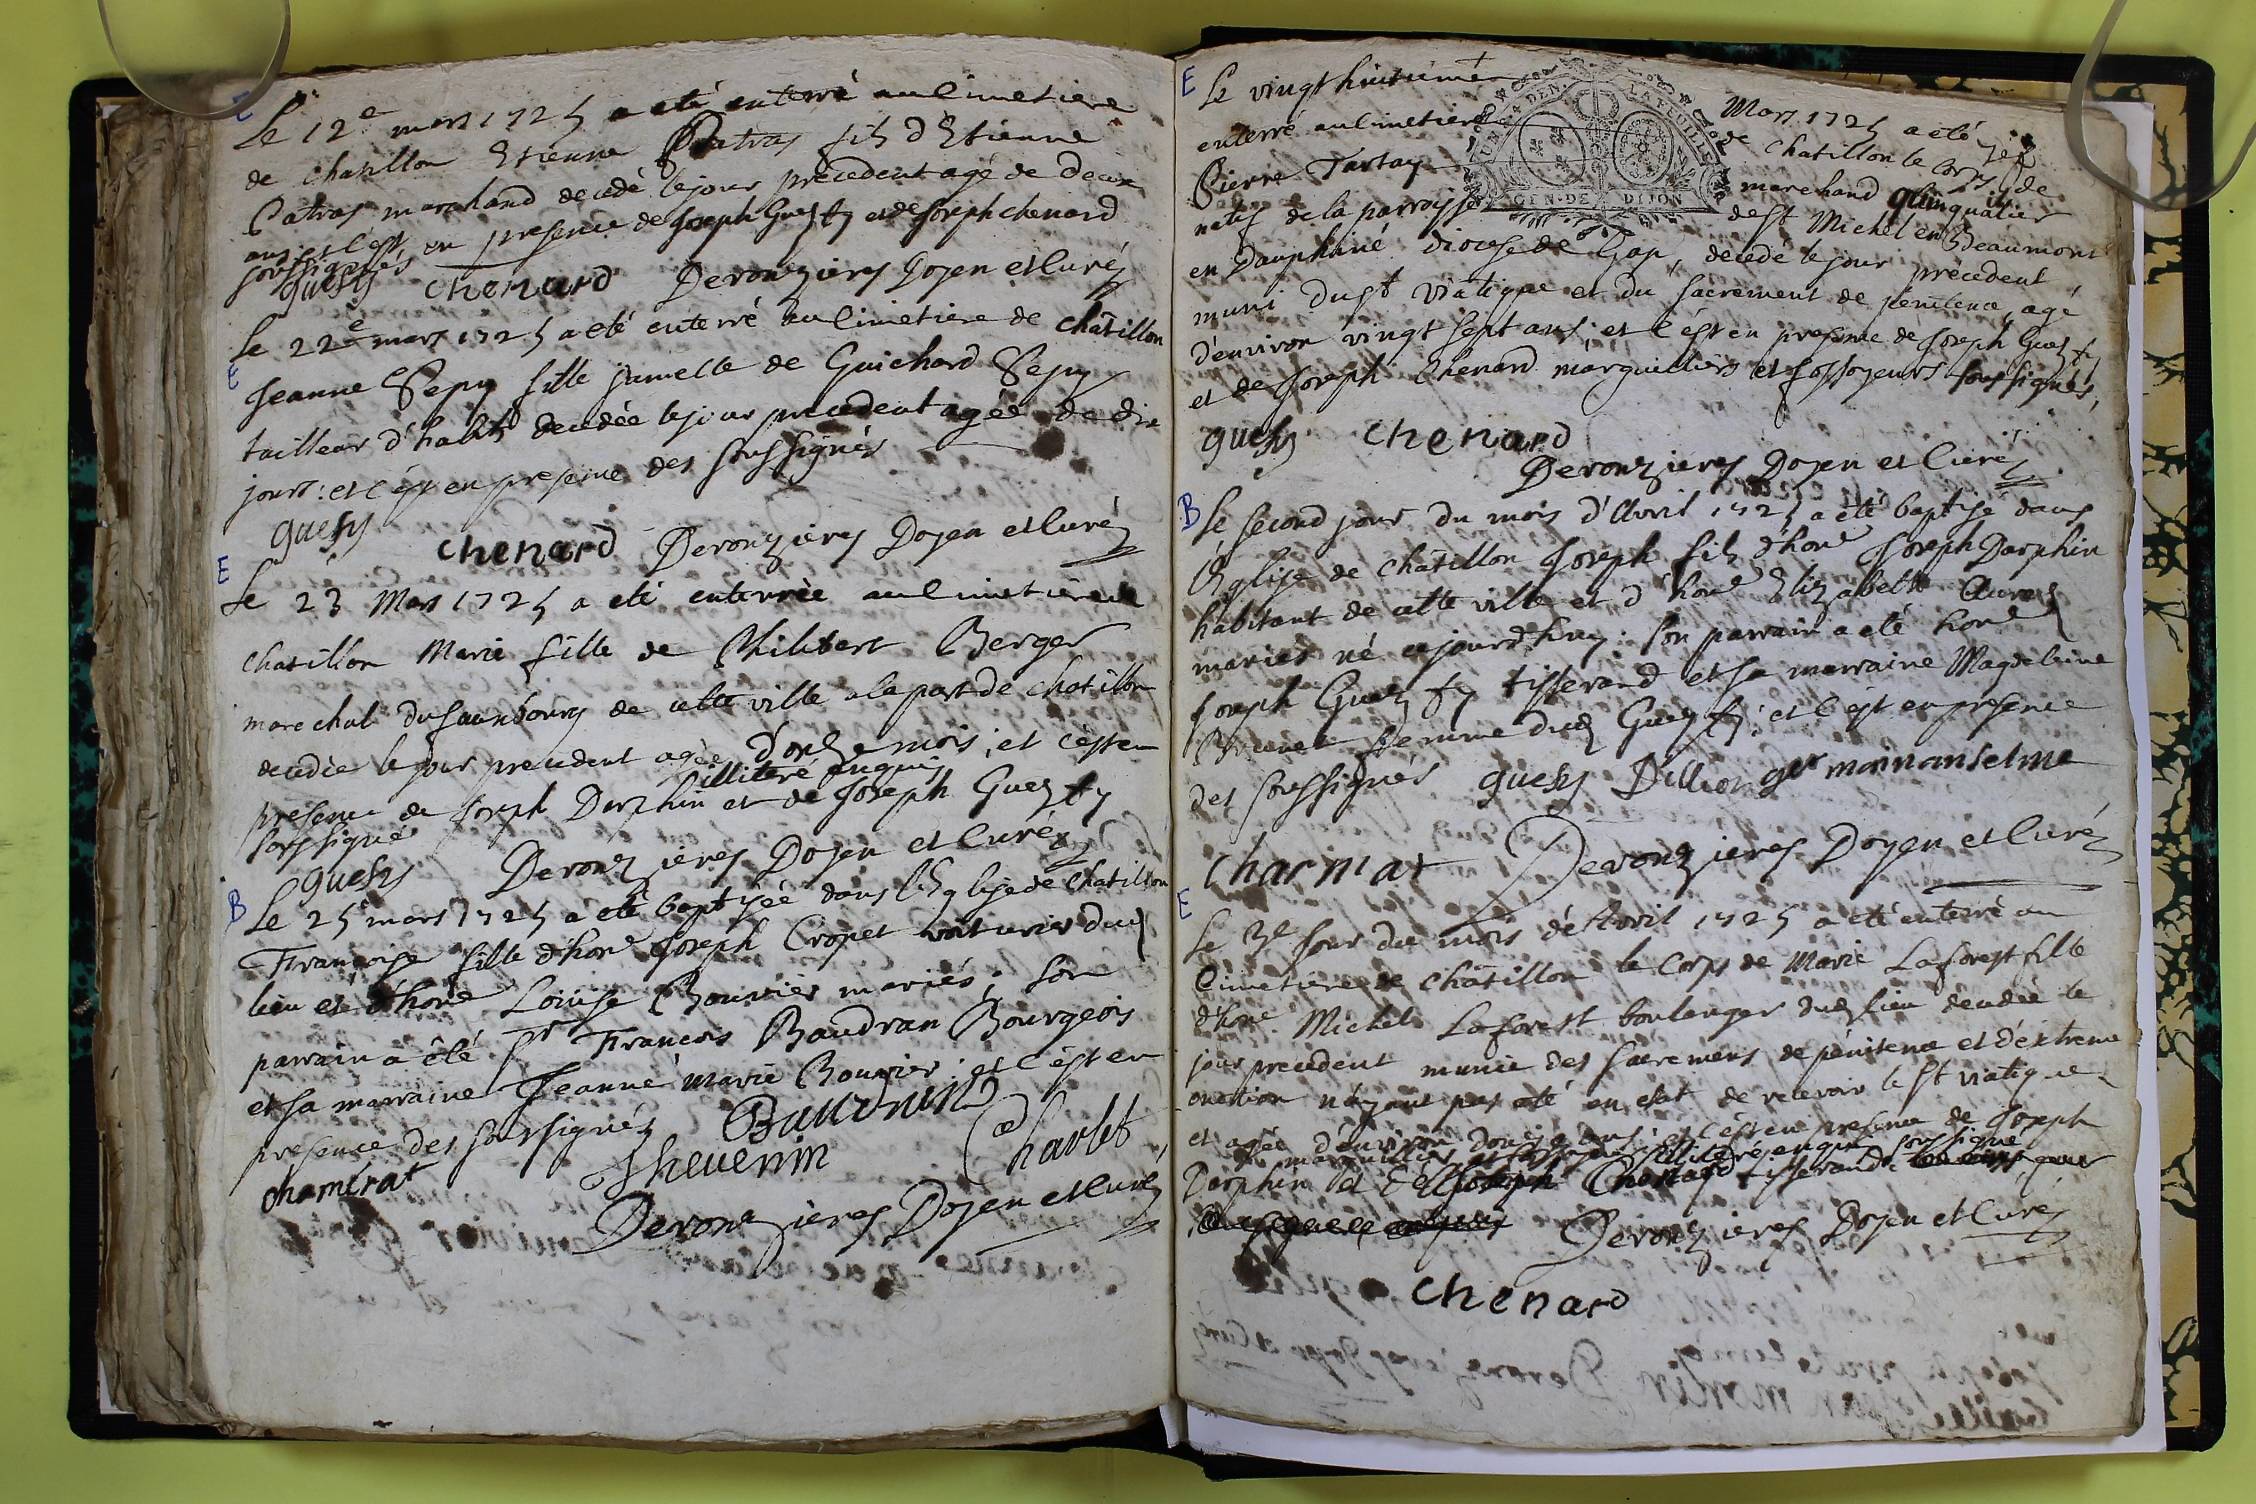 E
Le 12e mars 1725 a eté enterré au Cimetiere
de chatillon Etienne Patras fils d'Etienne
Patras marchand decedé le jour precedent agé de deux
ans et c'est en presence de Joseph Guesty et de Joseph chenard
soussignés
guesty chenard Deronzieres Doyen et Curé
E
Le 22e mars 1725 a eté enterré au Cimetiere de châtillon
Jeanne Sepy fille jumelle de Guichard Sepy
tailleur d'habits decedée le jour precedent agée de dix
jours: et c'est en presence des soussignés
guesty chenard Deronzieres Doyen et Curé
E
Le 23 Mars 1725 a eté enterrée au Cimetiere de
chatillon Marie fille de Philibert Berger
marechal du fauxbourg de cette ville a la part de chatillon
decedée le jour precedent agée d'onze mois; et c'est en
illiteré enquis
presence de Joseph Darphin et de Joseph Guesty
soussigné
guesty Deronzieres Doyen et Curé
B
Le 25 mars 1725 a eté baptisée dans l'Eglise de chatillon
Françoise fille d'hone Joseph Cropet voiturier dud
lieu et d'hone Louise Bouvier mariés; son
parrain a êté Sr Francois Baudran Bourgeois
et sa marraine Jeanne marie Bouvier: et c'est en
presence des soussignés Baudran
chamerat thevenin Charlet
Deronzieres Doyen et Curé
E
Le vingt huitieme Mars 1725 a eté
enterré au Cimetiere de Chatillon le Corps de
Pierre Tartay marchand quinquallier
natif de la parroisse de St Michel en Beaumont
en Dauphiné Diocese de Gap, decedé le jour precedent
muni du St Viatique et du sacrement de penitence, agé
d'environ vingt sept ans: et c'est en presence de Joseph Guesty
et de Joseph Chenard marguilliers et fossoyeurs soussignés,
GEN. DE DIJON
guesty chenard
Deronzieres Doyen et Curé
B
Le second jour du mois d'Avril 1725 a eté baptisé dans
l'Eglise de châtillon Joseph fils d'hone Joseph Darphin
habitant de cette ville et d'hone Elizabeth
mariés né cejourdhuy: son parrain a eté hone
Joseph Guesty tisserand et sa marraine Magdeleine
femme dud Guesty: et c'est en presence
des soussignés guesty Dillion
charmat Deronzieres Doyen et Curé
E
Le 3e jour du mois d'Avril 1725 a eté enterré au
Cimetiere de châtillon le Corps de Marie Laforest fille
d'hone Michel Laforest boulanger dud lieu decedée le
jour precedent munie des sacremens de pénitence et d'extreme
onction n'ayant pas eté en etat de recevoir le St viatique
et agée d'environ douze ans: et c'est en presence de Joseph
marguillier illiteré enquis soussigné
Darphin et de Joseph Chenard tisserand
Deronzieres Doyen et Curé
chenard